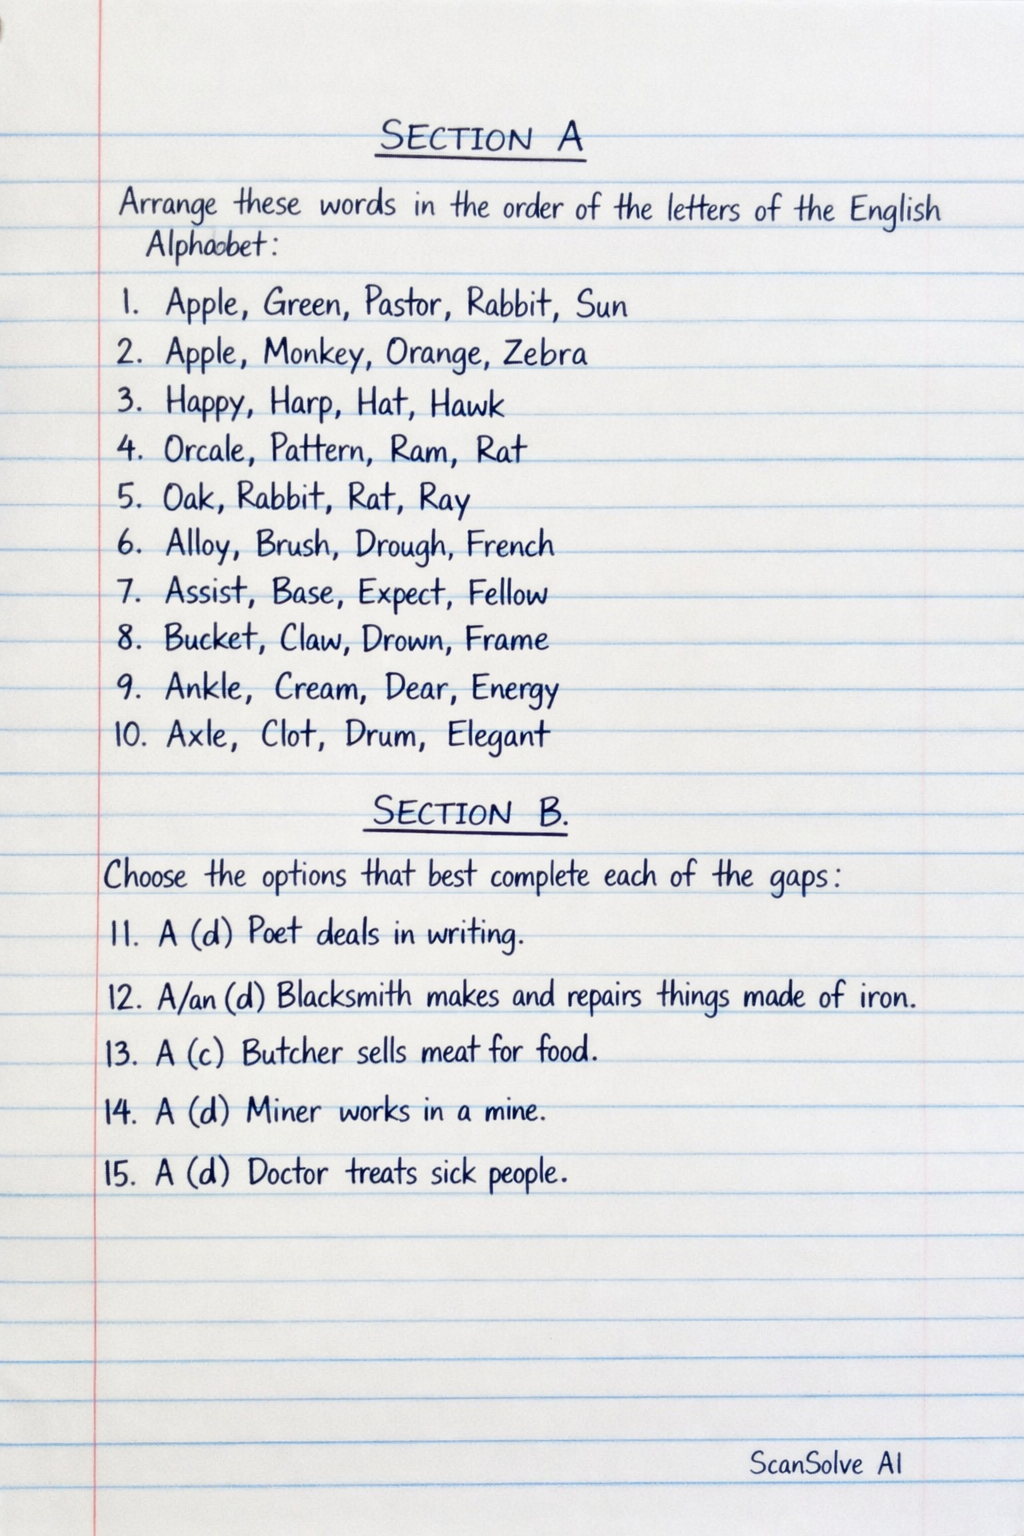 SECTION A
Arrange these words in the order of the letters of the English
Alphaobet:
1. Apple, Green, Pastor, Rabbit, Sun
2. Apple, Monkey, Orange, Zebra
3. Happy, Harp, Hat, Hawk
4. Orcale, Pattern, Ram, Rat
5. Oak, Rabbit, Rat, Ray
6. Alloy, Brush, Drough, French
7. Assist, Base, Expect, Fellow
8. Bucket, Claw, Drown, Frame
9. Ankle, Cream, Dear, Energy
10. Axle, Clot, Drum, Elegant
SECTION B.
Choose the options that best complete each of the gaps:
11. A (d) Poet deals in writing.
12. A/an (d) Blacksmith makes and repairs things made of iron.
13. A (c) Butcher sells meat for food.
14. A (d) Miner works in a mine.
15. A (d) Doctor treats sick people.
ScanSolve AI